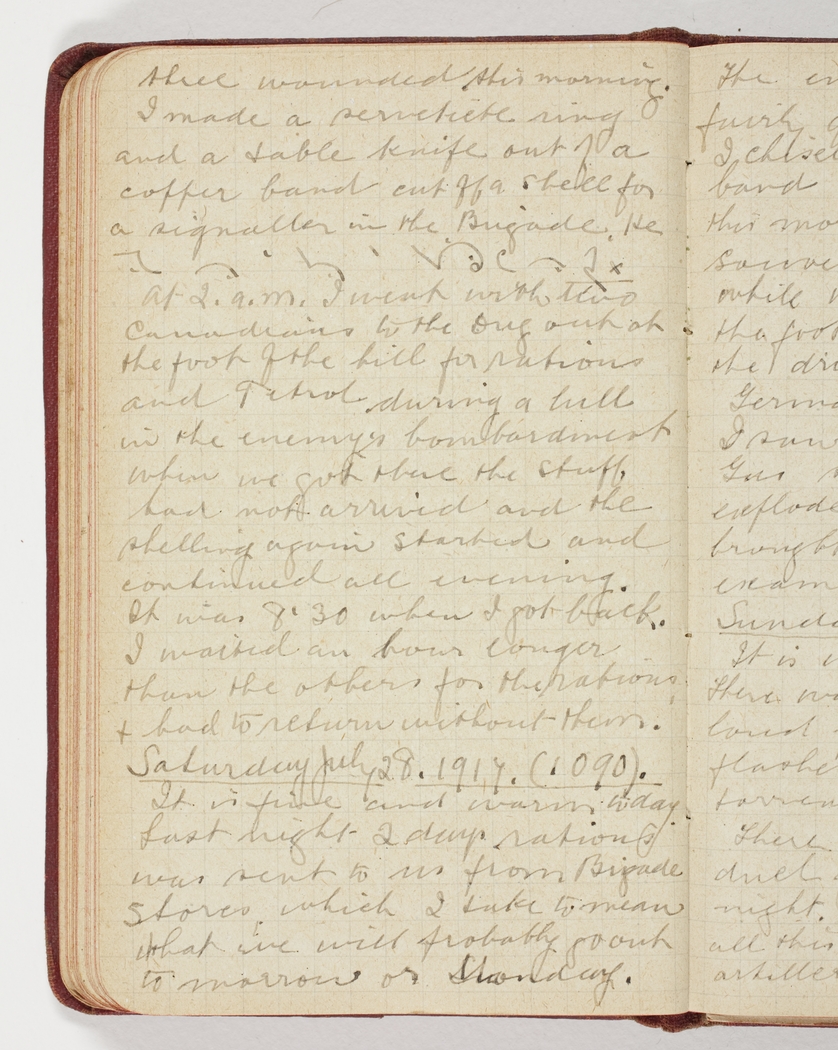 three wounded this morning.
I made a serveteite ring
and a table knife out of a
copper band cut off a shell for
a signaller in the Brigade. He
At 2. a.m. I went with two
Canadians to the Dug out at
the foot of the hill for rations
and Petrol during a lull
in the enemys bombardment
when we got there the stuff
had not arrived and the
shelling again started and
continued all evening.
It was 8.30 when I got back.
I waited an hour longer
than the others for the rations
+ had to return without them.
Saturday July 28. 1917. (1090).
It is fine and warm today
Last night 2 days rations
was sent to us from Brigade
Stores which I take to mean
that we will probably go out
to morrow or Monday.
The
fairly
I chisel
band
this mo
souve
while
the foot
the dri
Germa
I saw
Gas
explode
brought
exam
Sunda
It is
There wa
loud
flashe
torren
There
duel
night.
all this
artiller